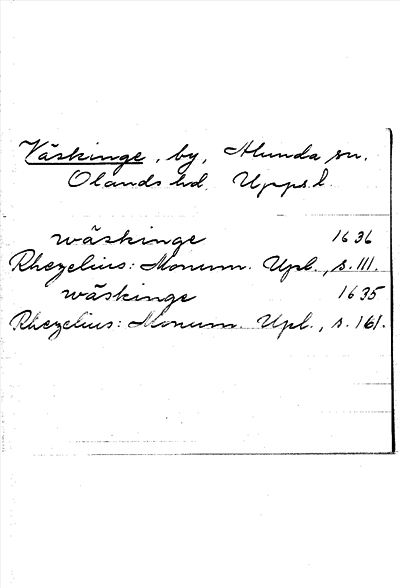 Väskinge, by, Alunda sn.
Olands hd. Upps. l.
wäskinge 1636
Rhezelius: Monum. Upl., s. 111.
wäskinge 1635
Rhezelius: Monum. Upl., s. 161.